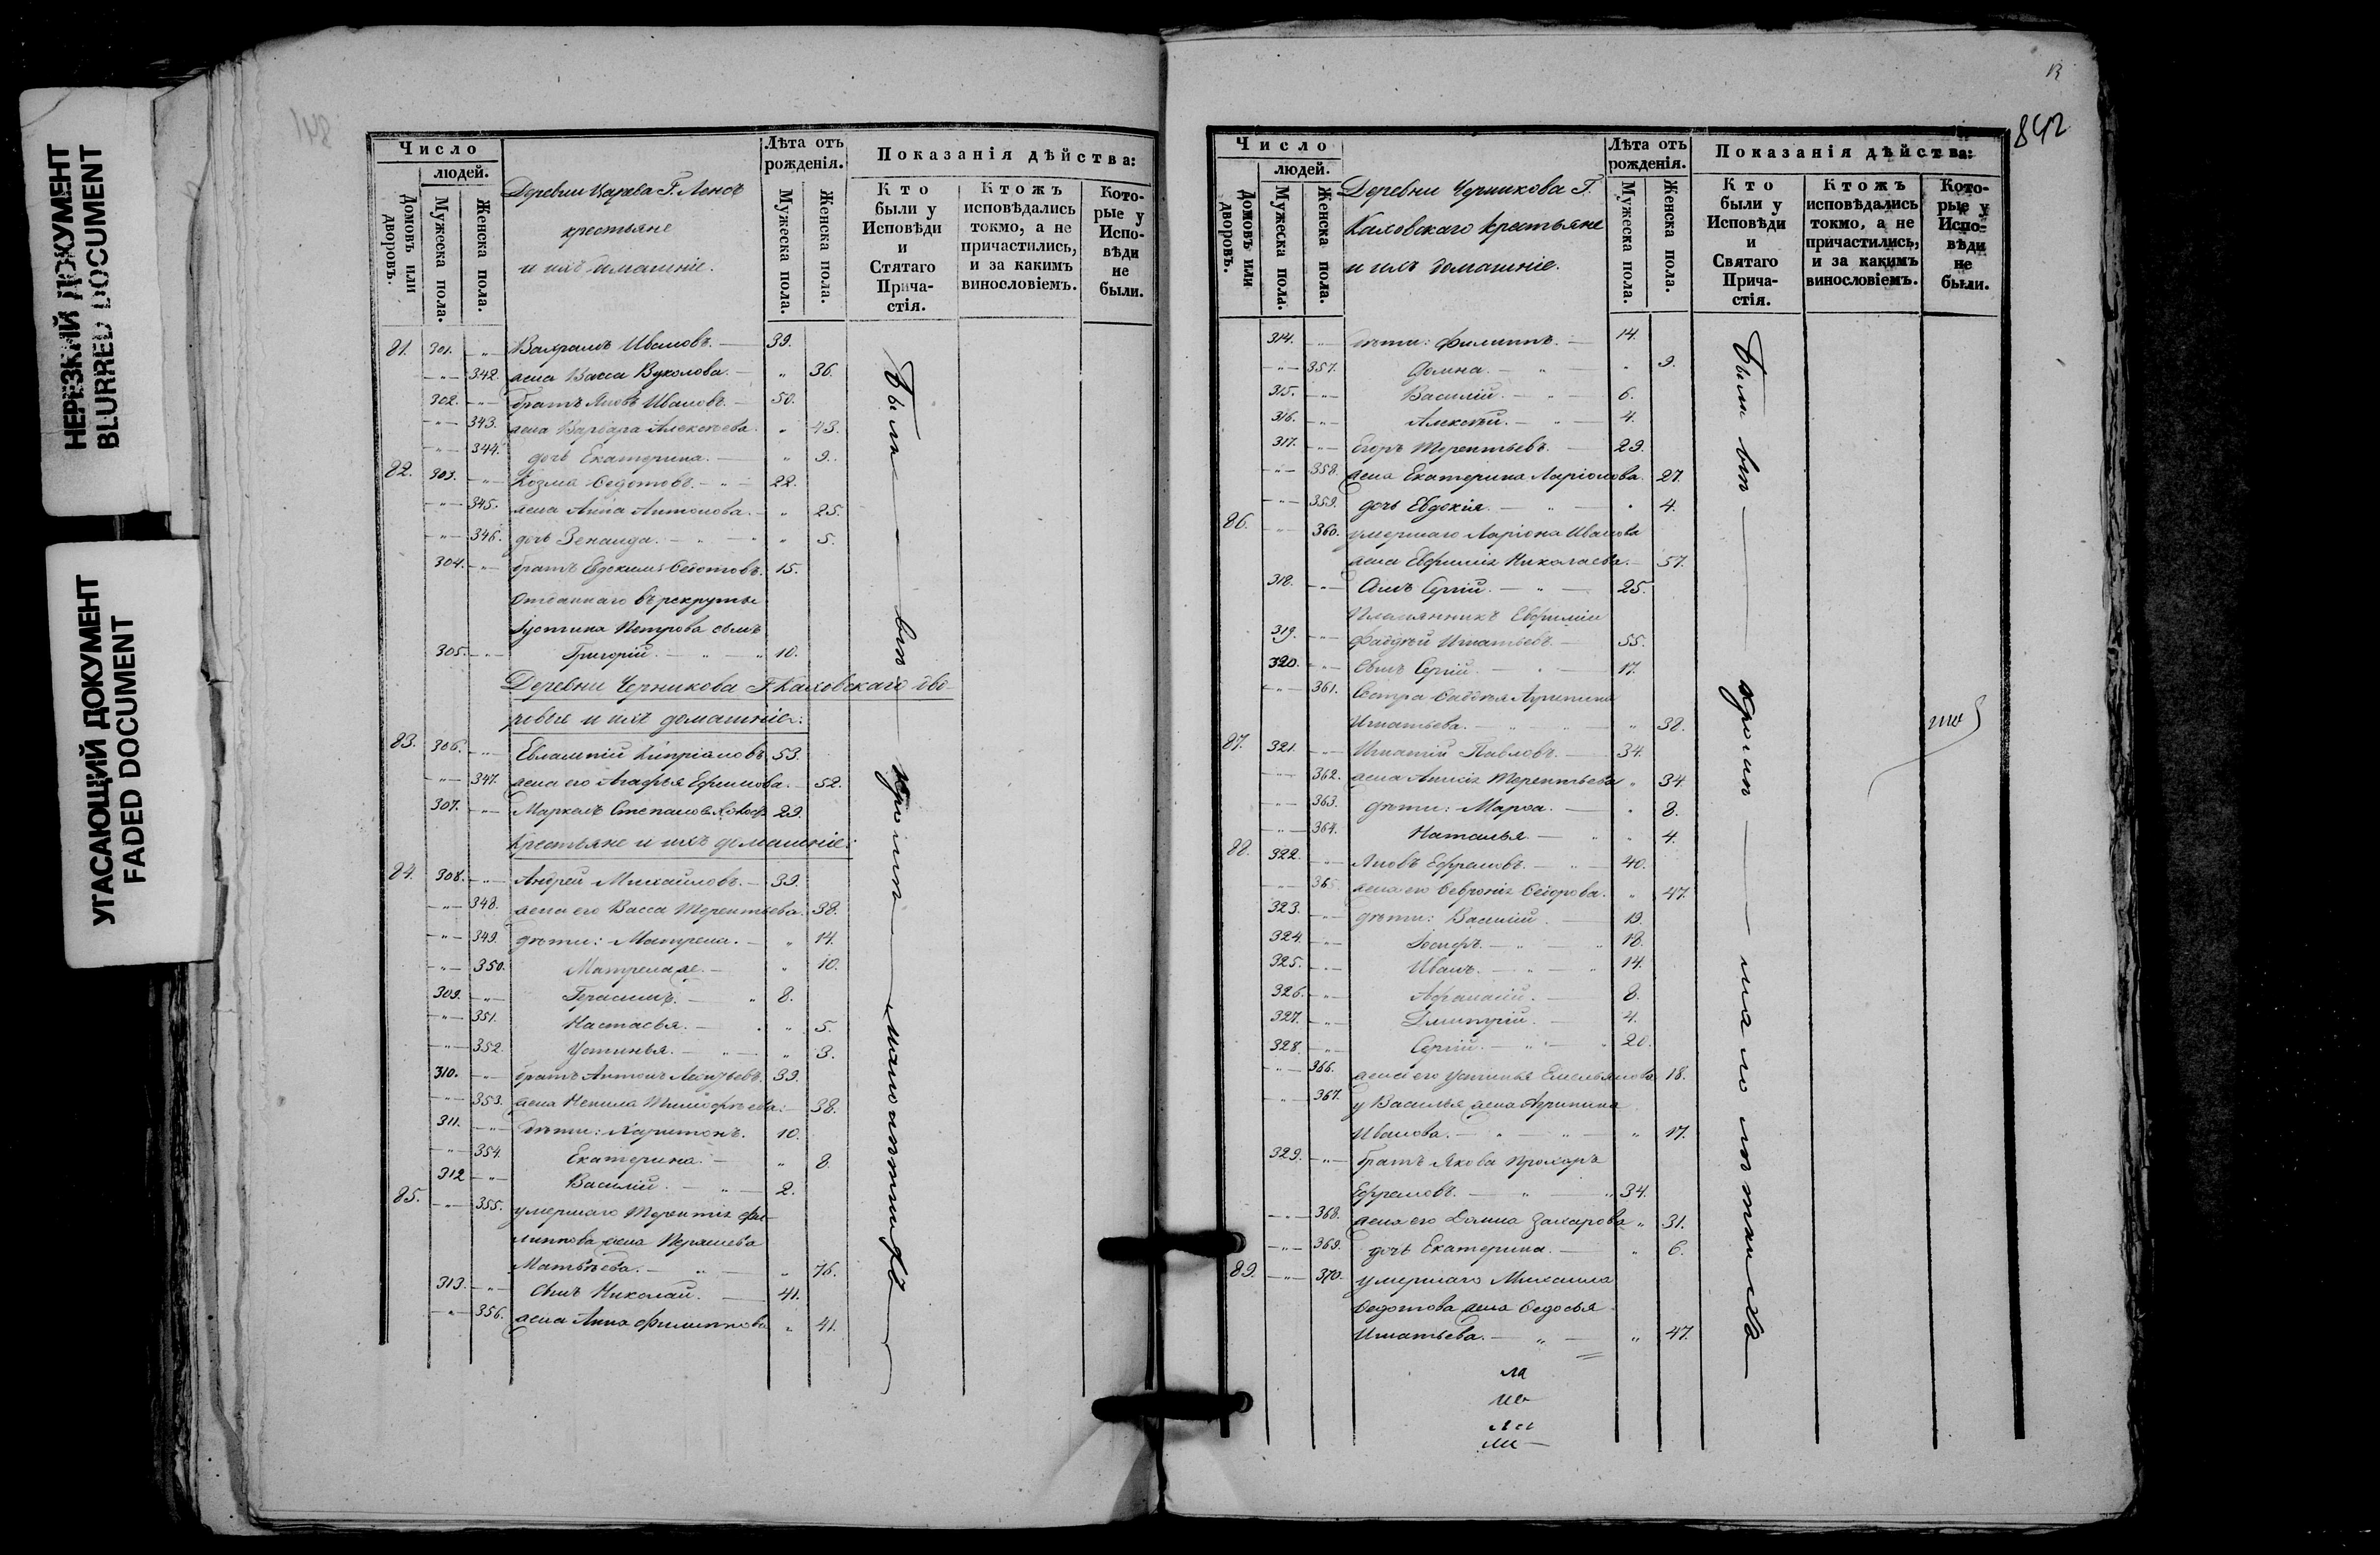 НЕРЕЗКИЙ ДОКУМЕНТ
BLURRED DOCUMENT
УГАСАЮЩИЙ ДОКУМЕНТ
FADED DOCUMENT
841
Число
людей.
Домовъ или дворовъ.
Мужеска пола.
Женска пола.
Деревни Г.
крестьяне
и ихъ домашніе.
Лѣта отъ рожденія.
Мужеска пола.
Женска пола.
Показанія дѣйства:
Кто были у Исповѣди и Стятаго Прича-стія.
Ктожъ исповѣдались токмо, а не причастились, и за какимъ винословіемъ.
Кото-рые у Испо-вѣди не были.
81. 301. -"- Иванов. — 39.
-"- 342. жена Васса Вуколова. — " 36.
302. -"- братъ Яковъ Ивановъ. — 50.
-"- 343. жена Варвара Алексѣева. " 43.
-"- 344. дочь Екатерина. — " 9.
82. 303. -"- Козма Ѳедотовъ. — " — 22.
-"- 345. жена Анна Антонова. — " 25.
-"- 346. дочь Зенаида. — " — " 5.
304. -"- братъ Евдокимъ Ѳедотовъ. 15.
Отданнаго въ рекруты
Іустина Петрова сынъ
305. -"- Григорій. — " — " 10.
Деревни Черникова Г. Каховскаго дво-
ровые и ихъ домашніе:
83. 306. -"- Евлампій Кипріановъ. 53.
-"- 347. жена его Агафья Ефимова. — 52.
307. -"- Маркелъ Степановъ 29.
Крестьяне и ихъ домашніе:
84. 308. -"- Андрей Михайловъ. — 39.
-"- 348. жена его Васса Терентьева. 38.
-"- 349. дѣти: Матрена. — " 14.
-"- 350. Матрена же. — " 10.
309. -"- Герасимъ. — " 8.
-"- 351. Настасья. — " 5.
-"- 352. Устинья. — " — " 3.
310. -"- братъ Антонъ 39.
-"- 353. жена Ненила Тимоѳеева. — 38.
311. -"- дѣти: Харитонъ. 10.
-"- 354. Екатерина. — " 8.
312 -"- Василій. — " — 2.
85. -"- 355. умершаго Терентія Фи-
липпова жена
Матвѣева. — " — " 76.
313. -"- сынъ Николай. — 41.
-"- 356. жена Анна Филиппова " 41.
Были — въ
842
Число
людей.
Домовъ или дворовъ.
Мужеска пола.
Женска пола.
Деревни Черникова Г.
Каховскаго крестьяне
и ихъ домашніе.
Лѣта отъ рожденія.
Мужеска пола.
Женска пола.
Показанія дѣйства:
Кто были у Исповѣди и Святаго Прича-стія.
Ктожъ исповѣдались токмо, а не причастились, и за какимъ винословіемъ.
Кото-рые у Испо-вѣди не были.
314. -"- дѣти: Филиппъ. — 14.
-"- 357. Домна. — " — " 9.
315. -"- Василій. — " — 6.
316. -"- Алексѣй. — " — 4.
317. -"- Егоръ Терентьевъ. — 29.
-"- 358. жена Екатерина Ларіонова. 27.
-"- 359. дочь Евдокія. — " — " 4.
86. -"- 360. умершаго Ларіона Иванова
жена Евфимія Николаева. — 57.
318. -"- Сынъ Сергій. — " — 25.
Племянникъ Евфиміи
319. -"- Фаддѣй Игнатьевъ. — 55.
320. -"- Сынъ Сергій. — " — 17.
-"- 361. Сестра Фаддѣя Агрипина
Игнатьева. — " — " 38.
87. 321. -"- Игнатій Павловъ. — 34.
-"- 362. жена Анисія Терентьева " 34.
-"- 363. дѣти: Марѳа. — " 8.
-"- 364. Наталья. — " " 4.
88. 322. -"- Яковъ Ефремовъ. — " — 40.
-"- 365. жена его Ѳевронія Ѳедорова. " 47.
323. -"- дѣти: Василій. — 19.
324. -"- Іосифъ. — " — " 18.
325. -"- Иванъ. — " — " 14.
326. -"- Афанасій. — 8.
327. -"- Дмитрій. — 4.
328. -"- Сергій. — " — " 20.
-"- 366. жена его Устинья Емельянова 18.
-"- 367. у Василья жена Агрипина
Иванова. — " — " — " 17.
329. -"- братъ Якова Прохоръ
Ефремовъ. — " — " 34.
-"- 368. жена его Домна Захарова " 31.
-"- 369. дочь Екатерина. — " 6.
89. -"- 370. умершаго Михаила
Ѳедотова жена Ѳедосья
Игнатьева. — " — " 47.
Были въ